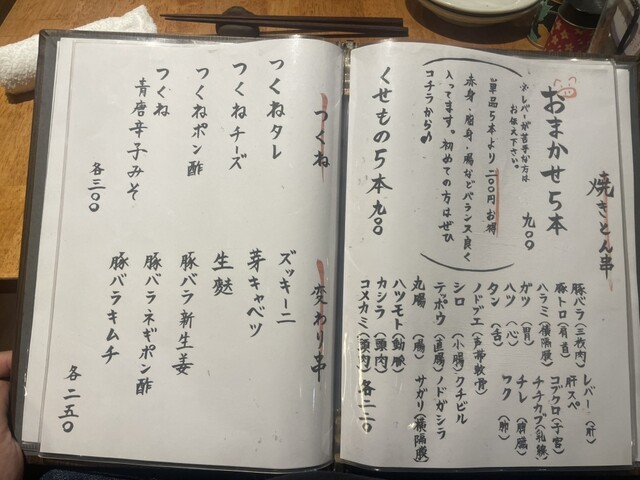 焼きとん串
おまかせ5本 九〇〇
※レバーが苦手な方は
お伝え下さい。
単品5本より二〇〇円お得
赤身・脂身・腸などバランス良く
入ってます。初めての方はぜひ
コチラから♪
くせもの5本 九〇〇
豚バラ(三枚肉)
豚トロ(首肉)
ハラミ(横隔膜)
ガツ(胃)
ハツ(心)
タン(舌)
ノドブエ(声帯軟骨)
シロ(小腸)
テッポウ(直腸)
丸腸(腸)
ハツモト(動脈)
カシラ(頭肉)
コメカミ(頭肉)
レバー(肝)
肝スペ
コブクロ(子宮)
チチカブ(乳腺)
チレ(脾臓)
ワク(卵)
クチビル
ノドガシラ
サガリ(横隔膜)
各二二〇
つくね
つくねタレ
つくねチーズ
つくねポン酢
つくね
青唐辛子みそ
各三〇〇
変わり串
ズッキーニ
芽キャベツ
生麩
豚バラ新生姜
豚バラネギポン酢
豚バラキムチ
各二五〇